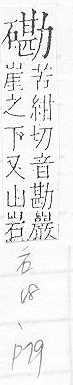 磡
苦紺切音勘巖
崖之下又山岩
方
18
、
P79